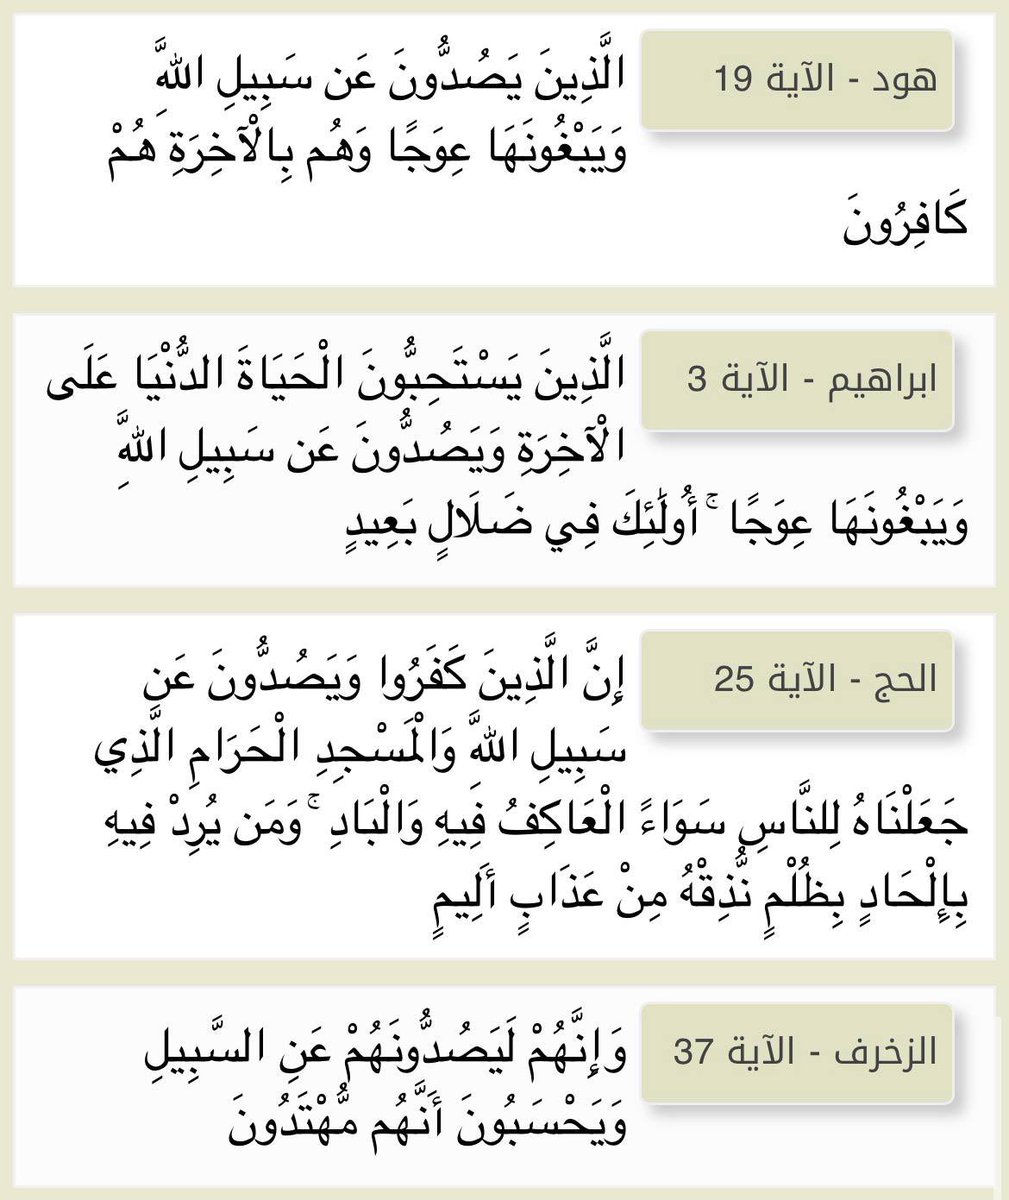 هود - الآية 19
الَّذِينَ يَصُدُّونَ عَن سَبِيلِ اللَّهِ
وَيَبْغُونَهَا عِوَجًا وَهُم بِالْآخِرَةِ هُمْ
كَافِرُونَ
ابراهيم - الآية 3
الَّذِينَ يَسْتَحِبُّونَ الْحَيَاةَ الدُّنْيَا عَلَى
الْآخِرَةِ وَيَصُدُّونَ عَن سَبِيلِ اللَّهِ
وَيَبْغُونَهَا عِوَجًا ۚ أُولَٰئِكَ فِي ضَلَالٍ بَعِيدٍ
الحج - الآية 25
إِنَّ الَّذِينَ كَفَرُوا وَيَصُدُّونَ عَن
سَبِيلِ اللَّهِ وَالْمَسْجِدِ الْحَرَامِ الَّذِي
جَعَلْنَاهُ لِلنَّاسِ سَوَاءً الْعَاكِفُ فِيهِ وَالْبَادِ ۚ وَمَن يُرِدْ فِيهِ
بِإِلْحَادٍ بِظُلْمٍ نُّذِقْهُ مِنْ عَذَابٍ أَلِيمٍ
الزخرف - الآية 37
وَإِنَّهُمْ لَيَصُدُّونَهُمْ عَنِ السَّبِيلِ
وَيَحْسَبُونَ أَنَّهُم مُّهْتَدُونَ